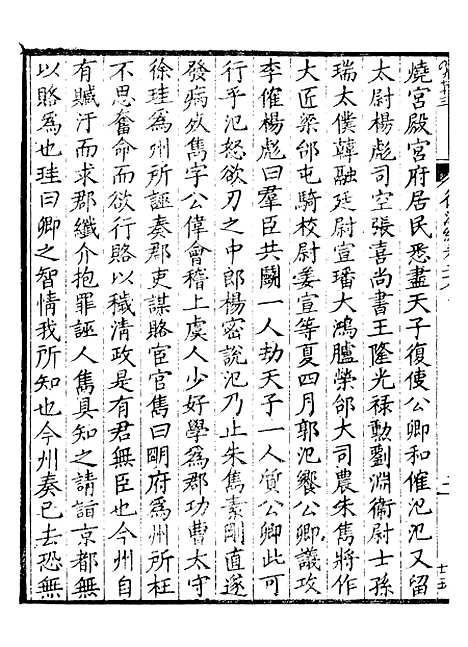 燒宮殿宮府居民悉盡天子復使公卿和傕汜汜又留
太尉楊彪司空張喜尚書王隆光祿勲劉淵衞尉士孫
瑞太僕韓融廷尉宣璠大鴻臚榮郃大司農朱雋將作
大匠梁邰屯騎校尉姜宣等夏四月郭汜饗公卿議攻
李傕楊彪曰羣臣共鬬一人劫天子一人質公卿此可
行乎汜怒欲刃之中郎楊密說汜乃止朱雋素剛直遂
發病效雋字公偉會稽上虞人少好學爲郡功曹太守
徐珪爲州所誣秦郡吏謀賂宦官雋曰明府爲州所枉
不思奮命而欲行賂以穢清政是有君無臣也今州自
有贓汙而求郡纖介抱罪誣人雋具知之請詣京都無
以賂爲也珪曰卿之智情我所知也今州奏已去恐無